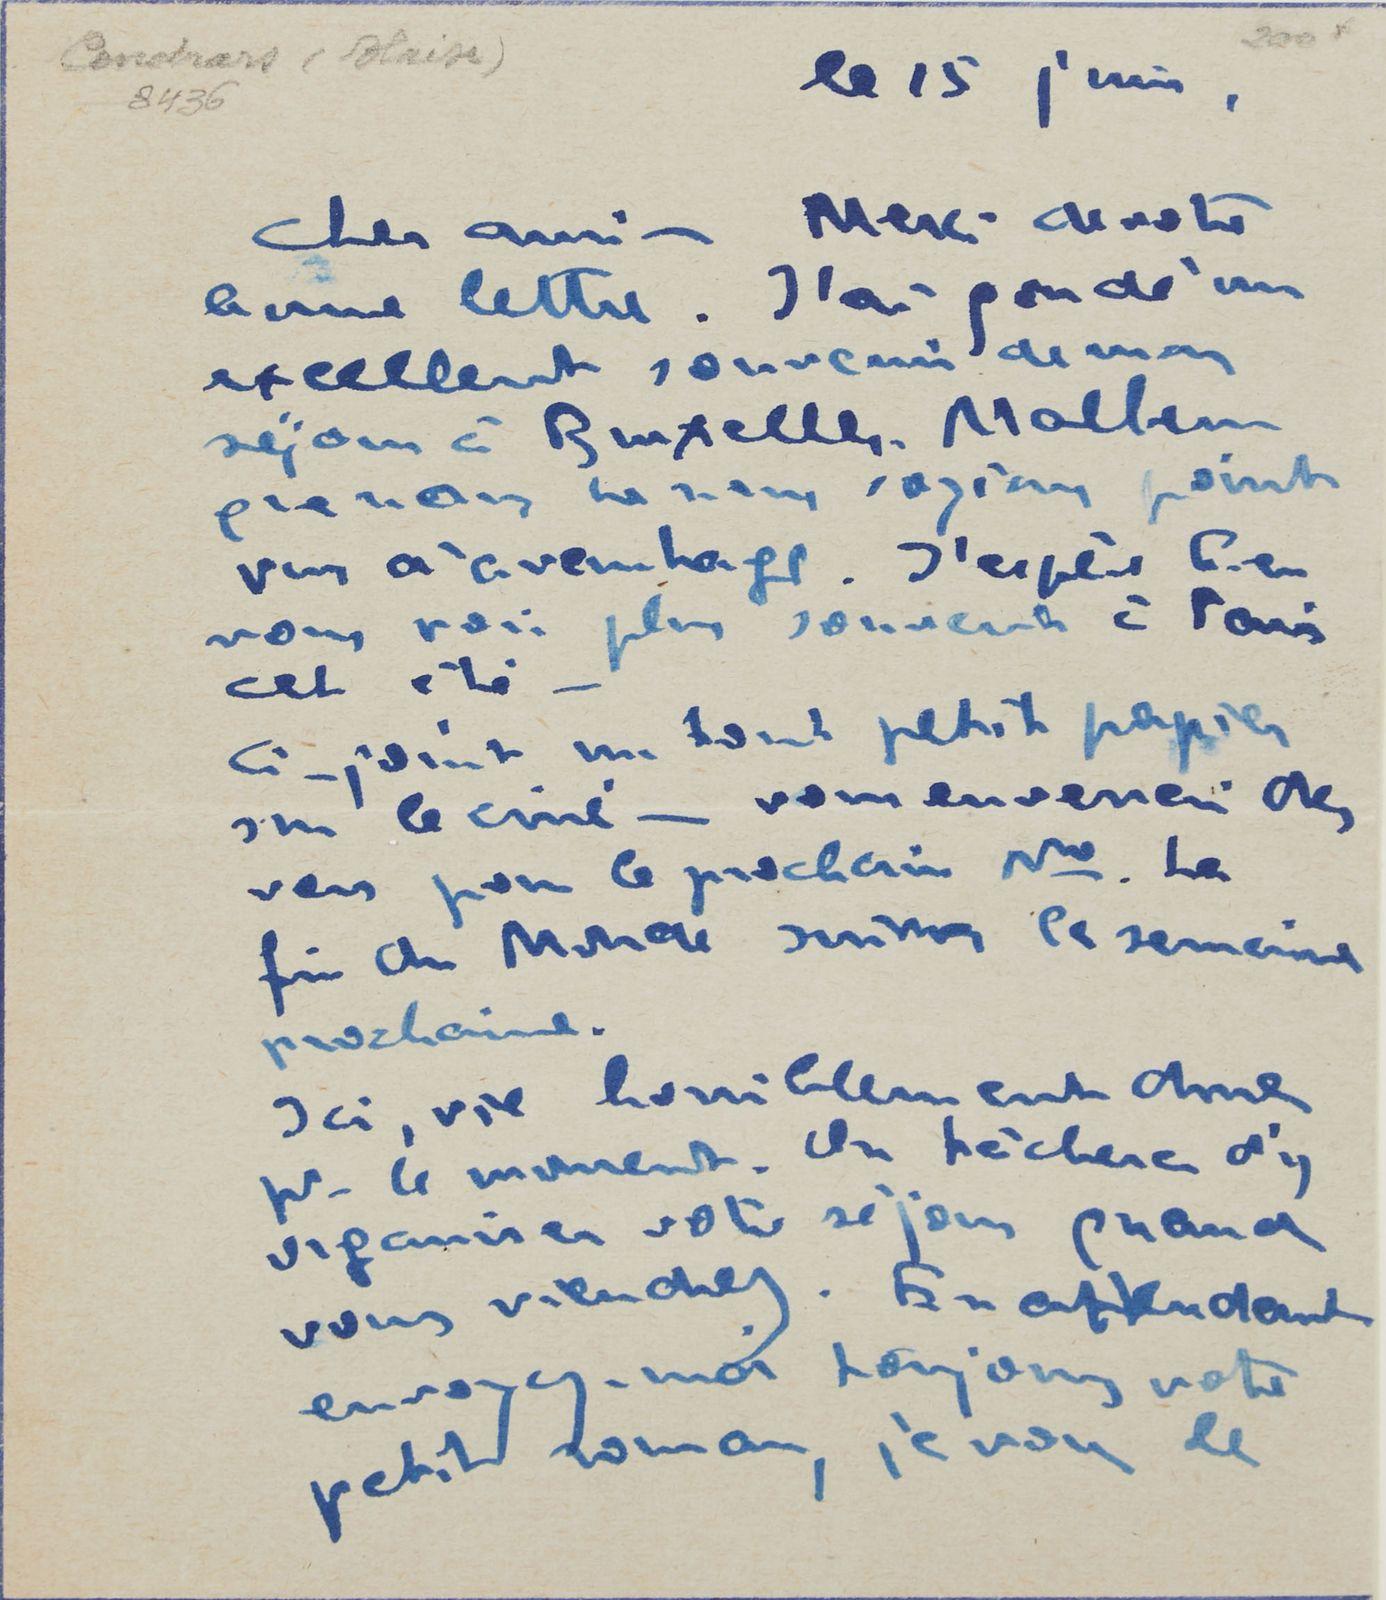 Cendrars (Blaise)
8436
200
le 15 juin,
Cher ami — Merci de votre
bonne lettre. J'ai gardé un
excellent souvenir de mon
séjour à Bruxelles. Malheu
que nous ne nous soyons point
vus d'avantage. J'espère bien
vous voir plus souvent à Paris
cet été —
Ci-joint un tout petit papier
sur le ciné — vous enverrai des
vers pour le prochain No. La
fin du Monde suivra la semaine
prochaine.
Ici, vie horriblement dure
pr. le moment. On tâchera d'y
organiser votre séjour quand
vous viendrez. En attendant
envoyez-moi toujours votre
petit roman, je vous le